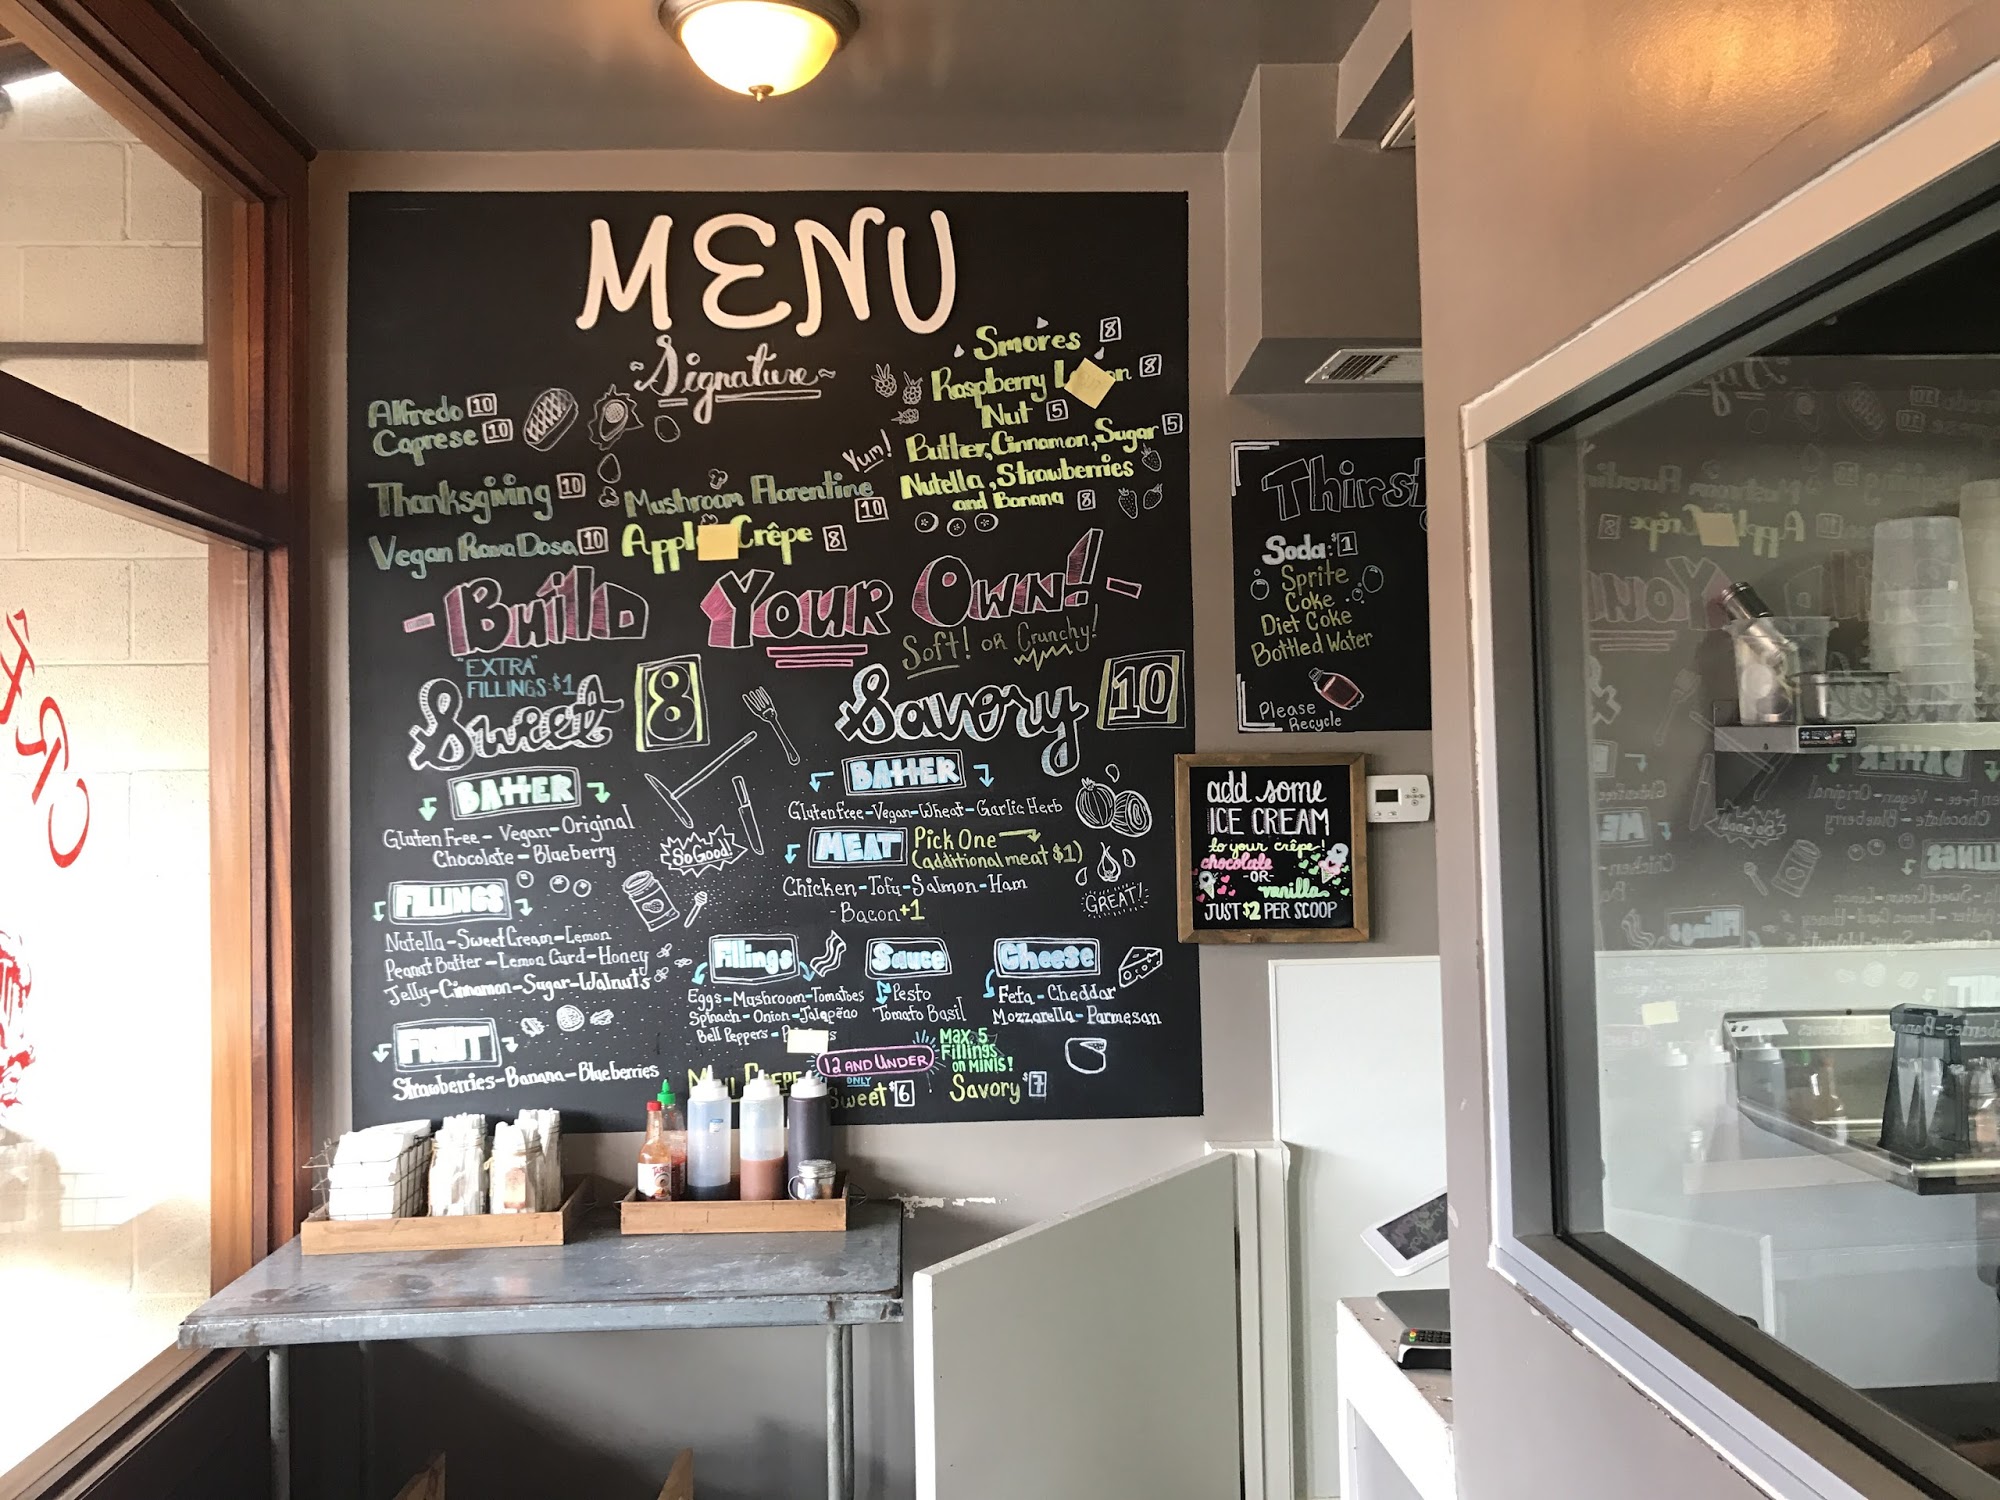 MENU
~Signature~
Alfredo 10
Caprese 10
Thanksgiving 10
Vegan Rava Dosa 10
Mushroom Florentine
10
Crêpe 8
Yum!
Smores 8
Raspberry 8
Nut 5
Butter, Cinnamon, Sugar 5
Nutella, Strawberries
and Banana 8
- Build Your Own! -
Soft! or Crunchy!
"EXTRA"
FILLINGS: $1
Sweet 8
BATTER
Gluten Free - Vegan - Original
Chocolate - Blueberry
So Good!
FILLINGS
Nutella - Sweet Cream - Lemon
Peanut Butter - Lemon Curd - Honey
Jelly - Cinnamon - Sugar - Walnuts
FRUIT
Strawberries - Banana - Blueberries
Savory 10
BATTER
Gluten free - Vegan - Wheat - Garlic Herb
MEAT Pick One
(additional meat $1)
Chicken - Tofu - Salmon - Ham
- Bacon +1
GREAT!
Fillings
Eggs - Mushroom - Tomatoes
Spinach - Onion - Jalapeño
Bell Peppers -
Sauce
Pesto
Tomato Basil
Cheese
Feta - Cheddar
Mozzarella - Parmesan
12 AND UNDER
ONLY
Sweet $6
Max. 5
Fillings
on MINIS!
Savory $7
Soda: $1
Sprite
Coke
Diet Coke
Bottled Water
Please
Recycle
add some
ICE CREAM
to your crêpe!
chocolate
-OR-
vanilla
JUST $2 PER SCOOP